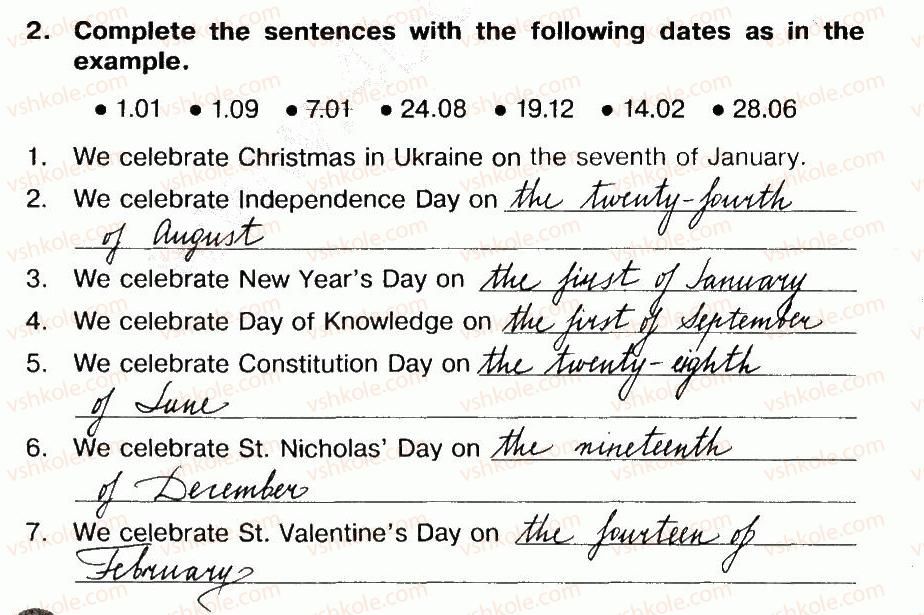 2. Complete the sentences with the following dates as in the
example.
• 1.01 • 1.09 • 7.01 • 24.08 • 19.12 • 14.02 • 28.06
1. We celebrate Christmas in Ukraine on the seventh of January.
2. We celebrate Independence Day on the twenty-fourth
of August
3. We celebrate New Year's Day on the first of January
4. We celebrate Day of Knowledge on the first of September
5. We celebrate Constitution Day on the twenty-eighth
of June
6. We celebrate St. Nicholas' Day on the nineteenth
of December
7. We celebrate St. Valentine's Day on the fourteen of
February
vshkole.com